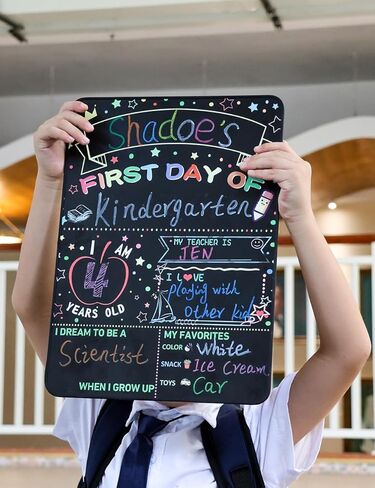 Shadoe's
FIRST DAY OF
Kindergarten
I AM
4
YEARS OLD
MY TEACHER IS
JEN
I L♥VE
Playing with
other kids
I DREAM TO BE A
Scientist
WHEN I GROW UP
MY FAVORITES
COLOR White
SNACK Ice Cream
TOYS Car